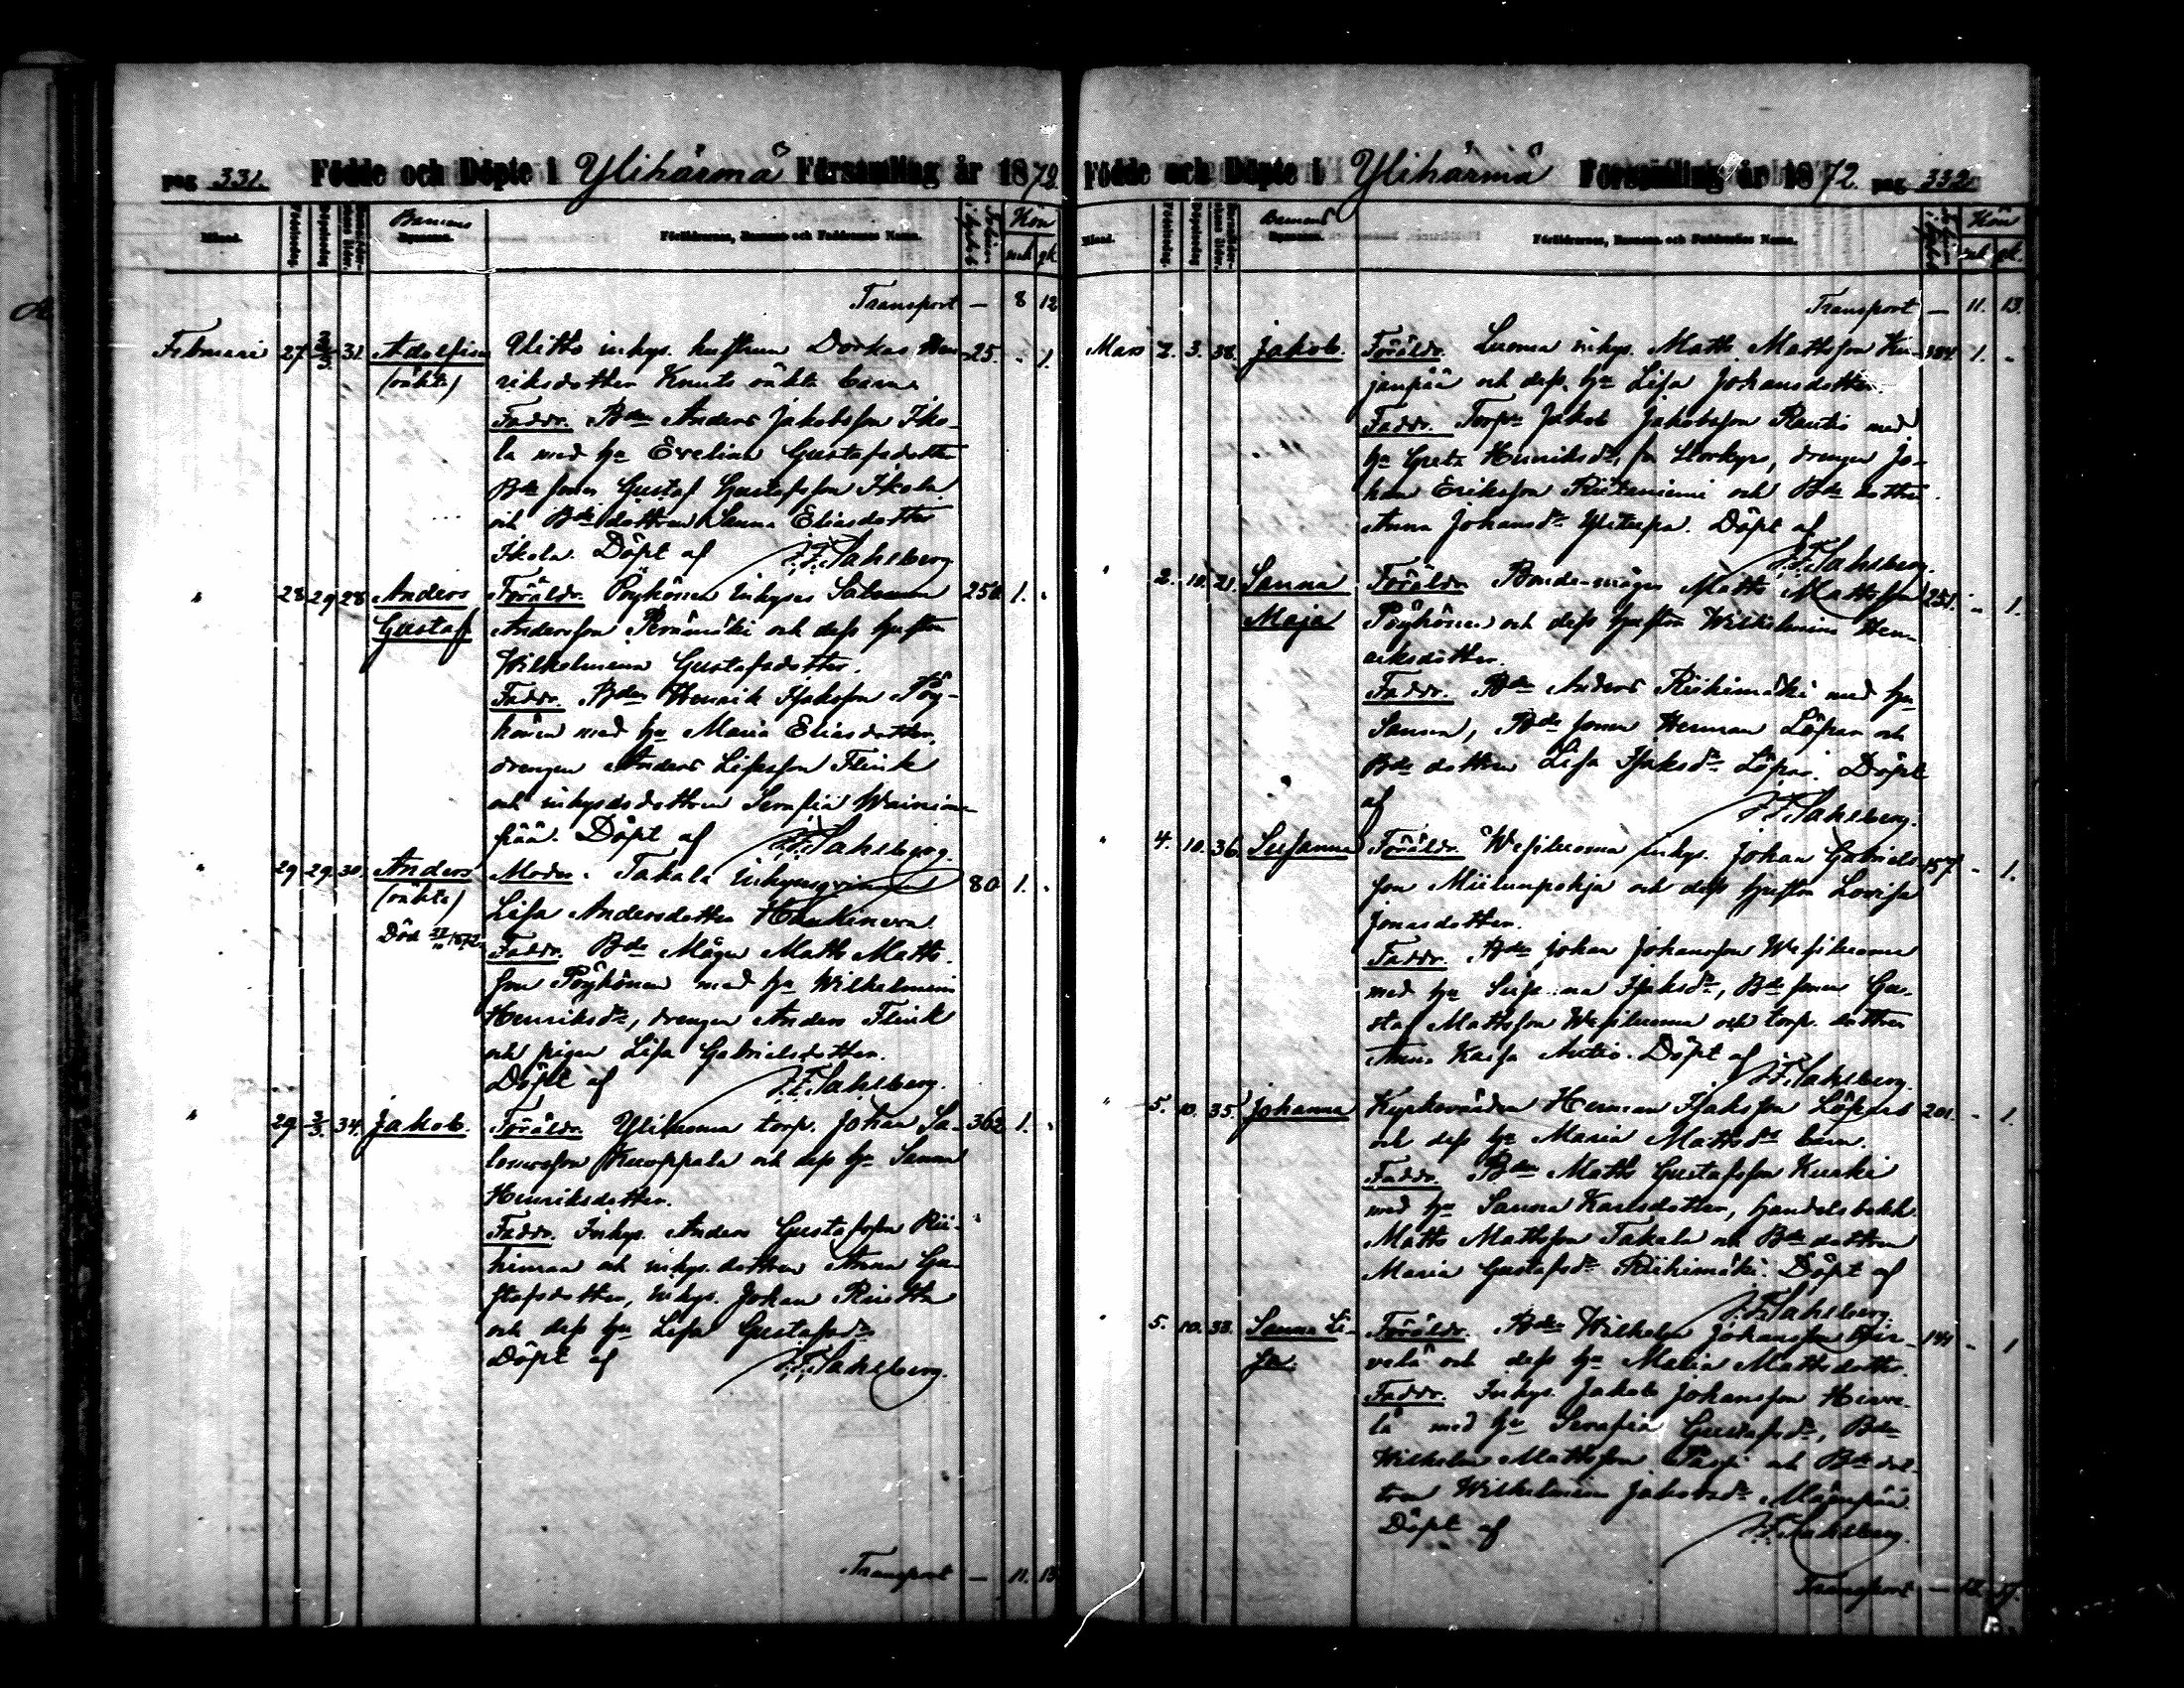 pag 331. Födde och Döpte i Ylihärmä Församling år 1872
Månad. Födelsedag. Döpelsedag Barnens Kön
Föräldrarnes, Barnens och Faddrarnes Namn. mk qk
Transport — 8 12
Februari 27 2/3 31. Adolfina Uitto inhys. hustrun Dorkas Hen- 25. " 1.
(oäkta) riksdotter Knuts oäkta barn.
Faddr. Bdn Anders Jakobsson Iko-
la med hu Evelina Gustafsdotter
Bde sonen Gustaf Gustafsson Ikola
och Bde dottren Sanna Eliasdotter
Ikola. Döpt af J. F. Sahlberg
" 28 29 28 Anders Föräldr. Pöyhönen Inhyses Salomon 250. 1. "
Gustaf Andersson Perämäki och dess hustru
Wilhelmina Gustafsdotter.
Faddr. Bden Henrik Isaksson Pöy-
hönen med hu Maria Eliasdotter,
drengen Anders Lisasson Flink
och inhysesdottren Serafia Wainion-
pää. Döpt af J. F. Sahlberg.
" 29 29. 30. Anders Moder. Takala Inhysesqvinnan 80 1. "
(oäkta) Lisa Andersdotter Haukineva.
Död 1872. Faddr. Bde Mågen Matts Matts-
son Pöyhönen med hu Wilhelmina
Henriksdr, drengen Anders Flink
och pigan Lisa Gabrielsdotter.
Döpt af J. F. Sahlberg.
" 29 3/3. 34. Jakob. Föräldr. Yliluoma torp. Johan Sa- 362 1. "
lomosson Knuoppala och dess hu Sanna
Henriksdotter.
Faddr. Inhys. Anders Gustafsson Rii-
himaa och inhys. dottren Anna Gu-
stafsdotter, inhys. Johan Riutta
och dess hu Lisa Gustafsdr
Döpt af J. F. Sahlberg.
Transport — 11. 13
Födde och Döpte i Ylihärmä Församling år 1872. pag 332.
Månad. Födelsedag. Döpelsedag Barnens Kön
Föräldrarnes, Barnens och Faddrarnes Namn. mk qk.
Transport — 11. 13.
Mars 2. 3. 38. Jakob. Föräldr. Luoma inhys. Matts Mattsson Ku- 184. 1. "
janpää och dess hu Lisa Johansdotter.
Faddr. Torpn Jakob Jakobsson Rautio med
hu Greta Henriksdr, fr Storkyro, drengen Jo-
han Eriksson Riitaniemi och Bde dottren
Anna Johansdr Ylitupa. Döpt af
J. F. Sahlberg.
" 2. 10. 21. Sanna Föräldr. Bonde-mågen Matts Mattsson 251. " 1.
Maja Pöyhönen och dess hustru Wilhelmina Hen-
riksdotter.
Faddr. Bdn Anders Riihimäki med hu
Sanna, Bde sonen Herman Löpari och
Bde dottren Lisa Isaksdr Löpari. Döpt
af J. F. Sahlberg.
" 4. 10. 36. Susanna Föräldr. Wesiluoma inhys. Johan Gabriels- 157. " 1.
son Miilunpohja och dess hustru Lovisa
Jonasdotter.
Faddr. Bdn Johan Johansson Wesiluoma
med hu Susanna Isaksdr, Bde sonen Gu-
staf Mattsson Wesiluoma och torp. dottren
Anna Kaisa Autio. Döpt af
J. F. Sahlberg.
" 5. 10. 35. Johanna Kyrkovärden Herman Isaksson Löpari 201. " 1.
och dess hu Maria Mattsdr barn.
Faddr. Bdn Matts Gustafsson Kuoki
med hu Sanna Karlsdotter, handelsbetj.
Matts Mattsson Takala och Bde dottren
Maria Gustafsdr Riihimäki. Döpt af
J. F. Sahlberg.
" 5. 10. 33. Sanna Li- Föräldr. Bdn Wilhelm Johansson Hir- 141 " 1
sa. velä och dess hu Maria Mattsdotter.
Faddr. Inhys. Jakob Johansson Hirve-
lä med hu Serafia Gustafsdr, Bdn
Wilhelm Mattsson Passi och Bde dot-
tren Wilhelmina Jakobsdr Mäenpää.
Döpt af J. F. Sahlberg.
Transport — 12. 17.